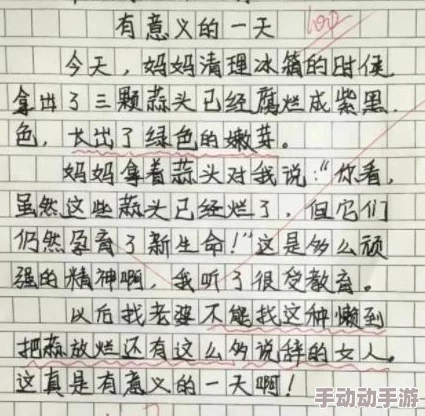 有意义的一天
100
今天，妈妈清理冰箱的时候，
拿出了三颗蒜头已经腐烂成紫黑
色，长出了绿色的嫩芽。
妈妈拿着蒜头对我说：“你看，
虽然这些蒜头已经烂了，但它们
仍然孕育了新生命！”这是多么顽
强的精神啊，我听了很受教育。
以后找老婆不能找这种懒到
把蒜放烂还有这么多说辞的女人。
这真是有意义的一天啊！
手动动手游